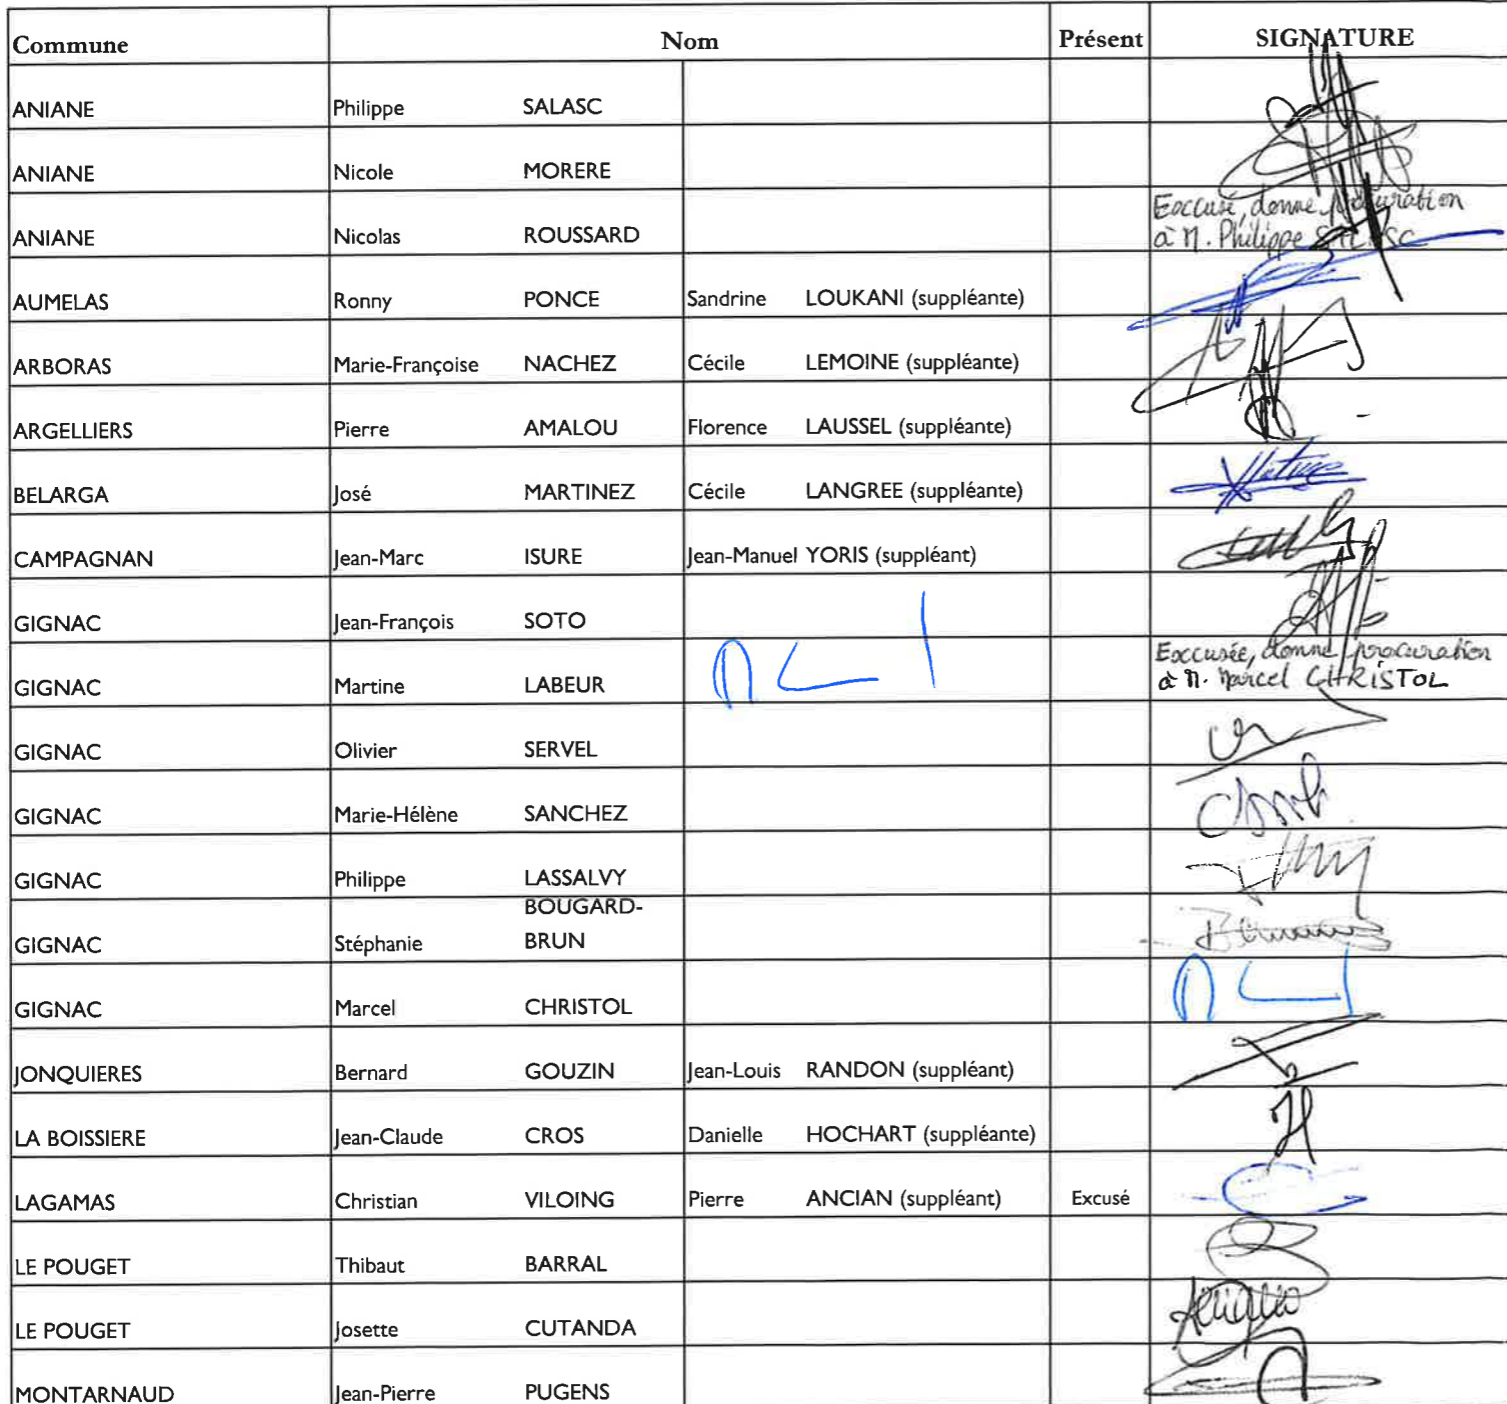 Commune Nom Présent SIGNATURE
ANIANE Philippe SALASC
ANIANE Nicole MORERE
ANIANE Nicolas ROUSSARD Excusé, donne procuration
à M. Philippe SALASC
AUMELAS Ronny PONCE Sandrine LOUKANI (suppléante)
ARBORAS Marie-Françoise NACHEZ Cécile LEMOINE (suppléante)
ARGELLIERS Pierre AMALOU Florence LAUSSEL (suppléante)
BELARGA José MARTINEZ Cécile LANGREE (suppléante)
CAMPAGNAN Jean-Marc ISURE Jean-Manuel YORIS (suppléant)
GIGNAC Jean-François SOTO
GIGNAC Martine LABEUR Excusée, donne procuration
à M. Marcel CHRISTOL
GIGNAC Olivier SERVEL
GIGNAC Marie-Hélène SANCHEZ
GIGNAC Philippe LASSALVY
BOUGARD-
GIGNAC Stéphanie BRUN
GIGNAC Marcel CHRISTOL
JONQUIERES Bernard GOUZIN Jean-Louis RANDON (suppléant)
LA BOISSIERE Jean-Claude CROS Danielle HOCHART (suppléante)
LAGAMAS Christian VILOING Pierre ANCIAN (suppléant) Excusé
LE POUGET Thibaut BARRAL
LE POUGET Josette CUTANDA
MONTARNAUD Jean-Pierre PUGENS